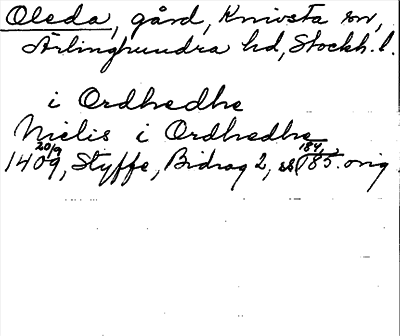 Oleda, gård, Knivsta sn,
Ärlinghundra hd, Stockh. l.
i Ordhedhe
Nielis i Ordhedhe
1409 20/9, Styffe, Bidrag 2, ss 184, 185. orig